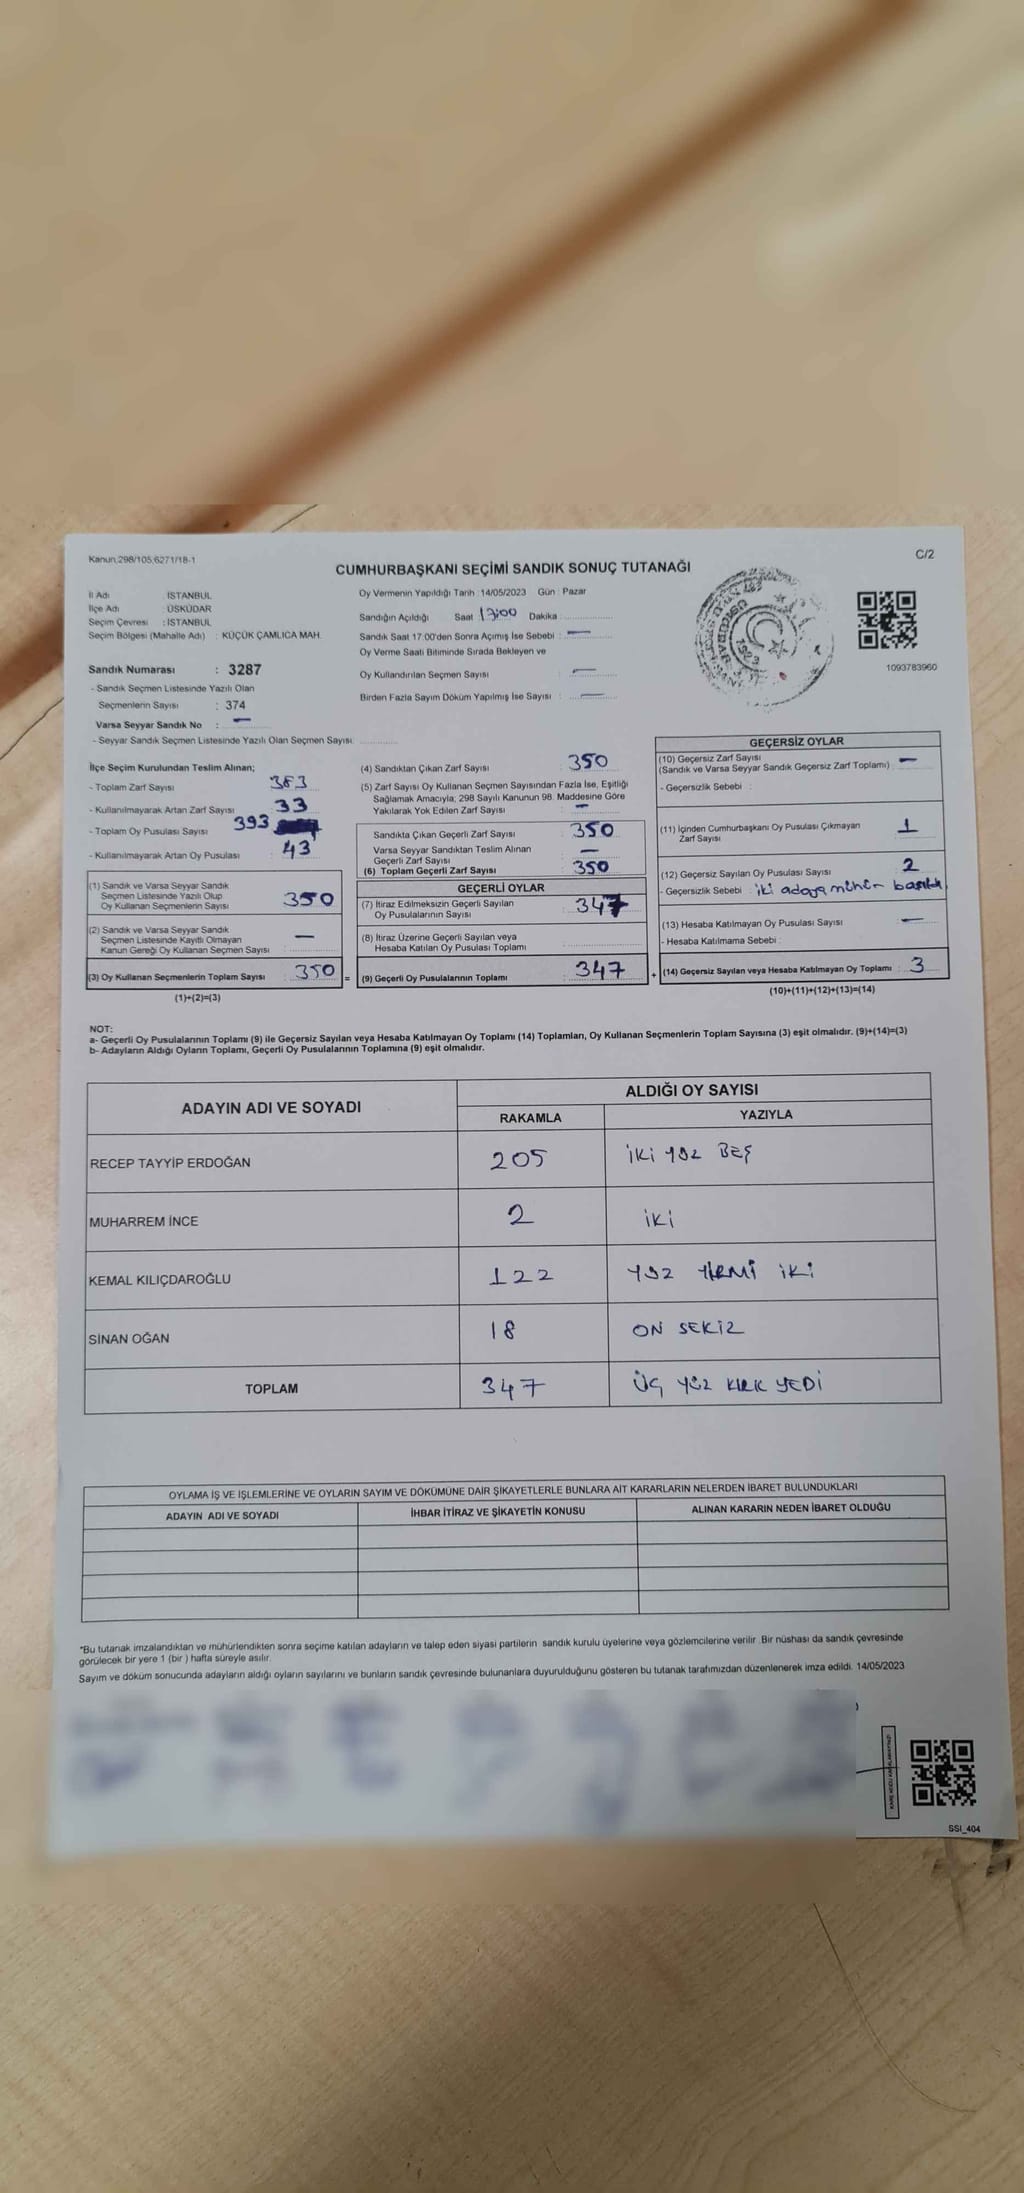 Kanun,298/105,6271/18-1
C/2
CUMHURBAŞKANI SEÇİMİ SANDIK SONUÇ TUTANAĞI
İl Adı İSTANBUL
İlçe Adı : ÜSKÜDAR
Seçim Çevresi : İSTANBUL
Seçim Bölgesi (Mahalle Adı) : KÜÇÜK ÇAMLICA MAH.
Sandık Numarası : 3287
- Sandık Seçmen Listesinde Yazılı Olan
Seçmenlerin Sayısı : 374
Varsa Seyyar Sandık No : —
- Seyyar Sandık Seçmen Listesinde Yazılı Olan Seçmen Sayısı:
Oy Vermenin Yapıldığı Tarih :14/05/2023 Gün Pazar
Sandığın Açıldığı Saat 17:00 Dakika
Sandık Saat 17:00'den Sonra Açımış İse Sebebi : —
Oy Verme Saati Bitiminde Sırada Bekleyen ve
Oy Kullandırılan Seçmen Sayısı : —
Birden Fazla Sayım Döküm Yapılmış İse Sayısı : —
1093783960
İlçe Seçim Kurulundan Teslim Alınan;
- Toplam Zarf Sayısı : 383
- Kullanılmayarak Artan Zarf Sayısı : 33
- Toplam Oy Pusulası Sayısı 393
- Kullanılmayarak Artan Oy Pusulası : 43
(1) Sandık ve Varsa Seyyar Sandık
Seçmen Listesinde Yazılı Olup
Oy Kullanan Seçmenlerin Sayısı : 350
(2) Sandık ve Varsa Seyyar Sandık
Seçmen Listesinde Kayıtlı Olmayan
Kanun Gereği Oy Kullanan Seçmen Sayısı : —
(3) Oy Kullanan Seçmenlerin Toplam Sayısı : 350 =
(1)+(2)=(3)
(4) Sandıktan Çıkan Zarf Sayısı : 350
(5) Zarf Sayısı Oy Kullanan Seçmen Sayısından Fazla İse, Eşitliği
Sağlamak Amacıyla, 298 Sayılı Kanunun 98. Maddesine Göre
Yakılarak Yok Edilen Zarf Sayısı : —
Sandıkta Çıkan Geçerli Zarf Sayısı : 350
Varsa Seyyar Sandıktan Teslim Alınan
Geçerli Zarf Sayısı : —
(6) Toplam Geçerli Zarf Sayısı : 350
GEÇERLİ OYLAR
(7) İtiraz Edilmeksizin Geçerli Sayılan
Oy Pusulalarının Sayısı : 347
(8) İtiraz Üzerine Geçerli Sayılan veya
Hesaba Katılan Oy Pusulası Toplamı :
(9) Geçerli Oy Pusulalarının Toplamı : 347 +
GEÇERSİZ OYLAR
(10) Geçersiz Zarf Sayısı
(Sandık ve Varsa Seyyar Sandık Geçersiz Zarf Toplamı) : —
- Geçersizlik Sebebi :
(11) İçinden Cumhurbaşkanı Oy Pusulası Çıkmayan
Zarf Sayısı : 1
(12) Geçersiz Sayılan Oy Pusulası Sayısı : 2
- Geçersizlik Sebebi : iki adaya mühür
(13) Hesaba Katılmayan Oy Pusulası Sayısı : —
- Hesaba Katılmama Sebebi :
(14) Geçersiz Sayılan veya Hesaba Katılmayan Oy Toplamı : 3
(10)+(11)+(12)+(13)=(14)
NOT:
a- Geçerli Oy Pusulalarının Toplamı (9) ile Geçersiz Sayılan veya Hesaba Katılmayan Oy Toplamı (14) Toplamları, Oy Kullanan Seçmenlerin Toplam Sayısına (3) eşit olmalıdır. (9)+(14)=(3)
b- Adayların Aldığı Oyların Toplamı, Geçerli Oy Pusulalarının Toplamına (9) eşit olmalıdır.
ADAYIN ADI VE SOYADI
ALDIĞI OY SAYISI
RAKAMLA YAZIYLA
RECEP TAYYİP ERDOĞAN 205 İKİ YÜZ BEŞ
MUHARREM İNCE 2 İKİ
KEMAL KILIÇDAROĞLU 122 YÜZ YİRMİ İKİ
SİNAN OĞAN 18 ON SEKİZ
TOPLAM 347 ÜÇ YÜZ KIRK YEDİ
OYLAMA İŞ VE İŞLEMLERİNE VE OYLARIN SAYIM VE DÖKÜMÜNE DAİR ŞİKAYETLERLE BUNLARA AİT KARARLARIN NELERDEN İBARET BULUNDUKLARI
ADAYIN ADI VE SOYADI İHBAR İTİRAZ VE ŞİKAYETİN KONUSU ALINAN KARARIN NEDEN İBARET OLDUĞU
*Bu tutanak imzalandıktan ve mühürlendikten sonra seçime katılan adayların ve talep eden siyasi partilerin sandık kurulu üyelerine veya gözlemcilerine verilir. Bir nüshası da sandık çevresinde
görülecek bir yere 1 (bir ) hafta süreyle asılır.
Sayım ve döküm sonucunda adayların aldığı oyların sayılarını ve bunların sandık çevresinde bulunanlara duyurulduğunu gösteren bu tutanak tarafımızdan düzenlenerek imza edildi. 14/05/2023
SSI_404